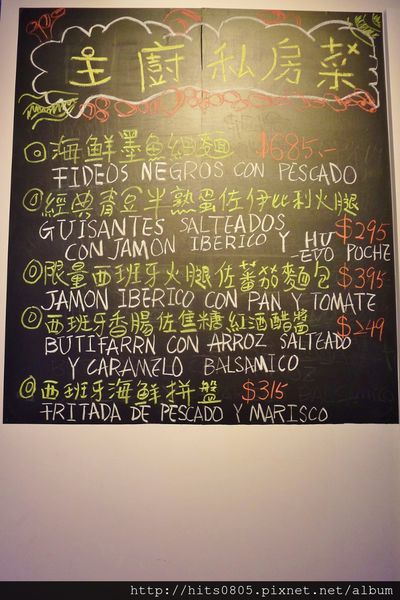 主廚私房菜
海鮮墨魚細麵 $685.-
FIDEOS NEGROS CON PESCADO
經典青豆半熟蛋佐伊比利火腿
GUISANTES SALTEADOS $295
CON JAMON IBERICO Y HU
-EVO POCHE
限量西班牙火腿佐蕃茄麵包 $395
JAMON IBERICO CON PAN Y TOMATE
西班牙香腸佐焦糖紅酒醋醬 $249
BUTIFARRN CON ARROZ SALTEADO
Y CARAMELO BALSAMICO
西班牙海鮮拼盤 $315
FRITADA DE PESCADO Y MARISCO
http://hits0805.pixnet.net/album